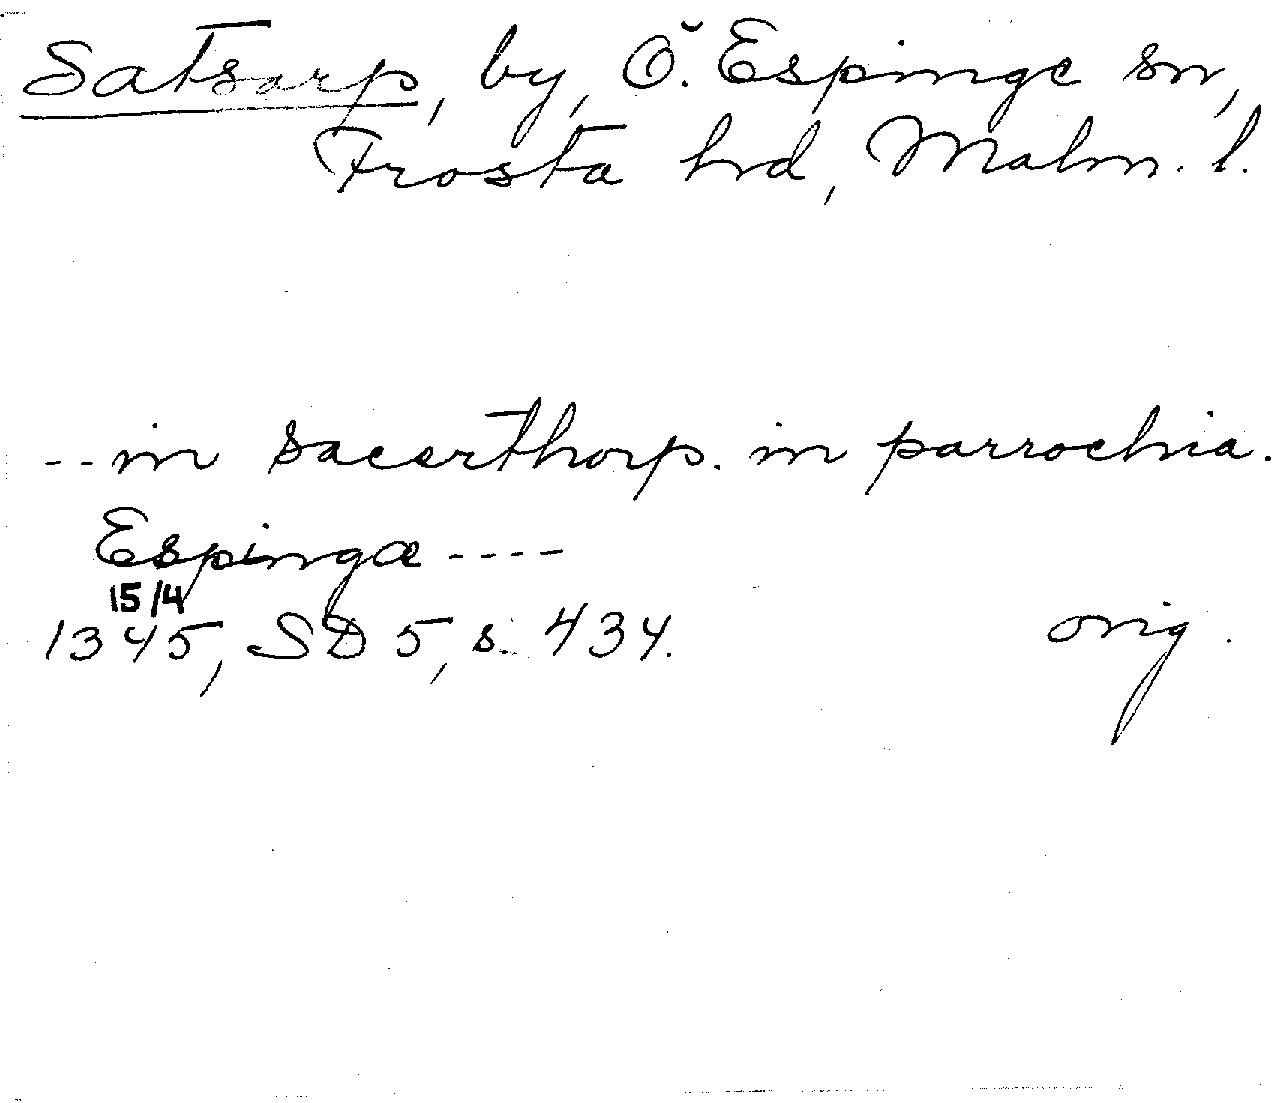 Satsarp, by, Ö. Espinge sn,
Frosta hrd, Malm. l.
--in sacerthorp. in parrochia.
Espinga ----
15/4
1345, SD 5, s. 434.
orig.